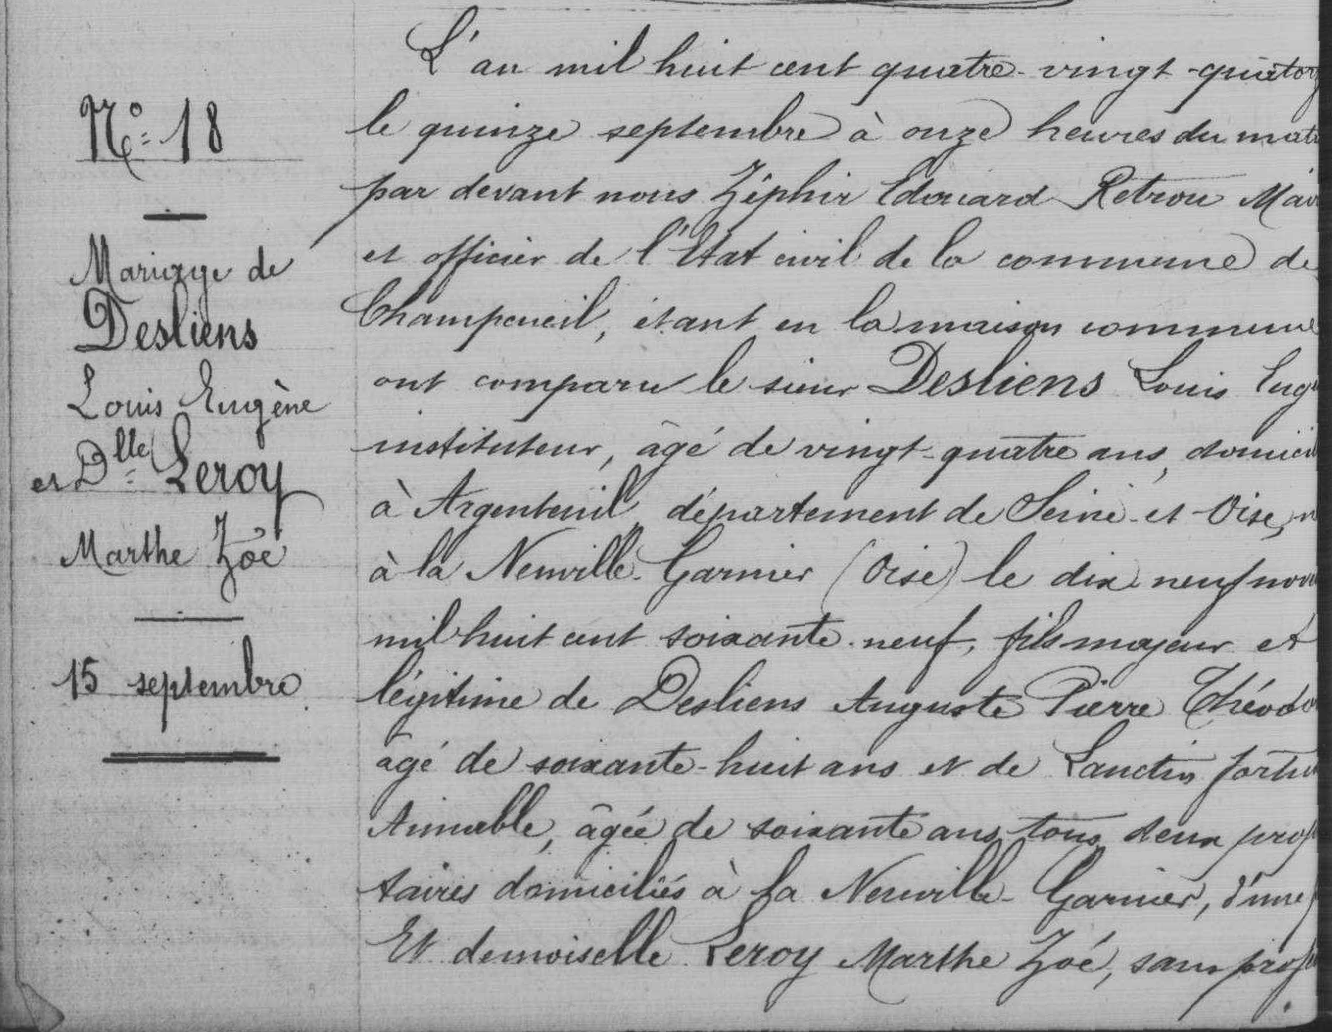 N.o 18
Mariage de
Desliens
Louis Eugène
et Dlle Leroy
Marthe Zoé
15 septembre
L'an mil huit cent quatre-vingt-quatorz
le quinze septembre à onze heures du mati
par devant nous Zéphir Edouard Retrou Mair
et officier de l'Etat civil de la commune de
Champcueil, étant en la maison commune
ont comparu le sieur Desliens Louis Eug
instituteur, âgé de vingt-quatre ans, domicil
à Argenteuil département de Seine-et-Oise, n
à la Neuville-Garnier (Oise) le dix neuf nov
mil huit cent soixante-neuf, fils majeur et
légitime de Desliens Auguste Pierre Théodo
âgé de soixante-huit ans et de
âgée de soixante ans tous deux prop
taires domiciliés à la Neuville-Garnier, d'une p
Et demoiselle Leroy Marthe Zoé, sans prof